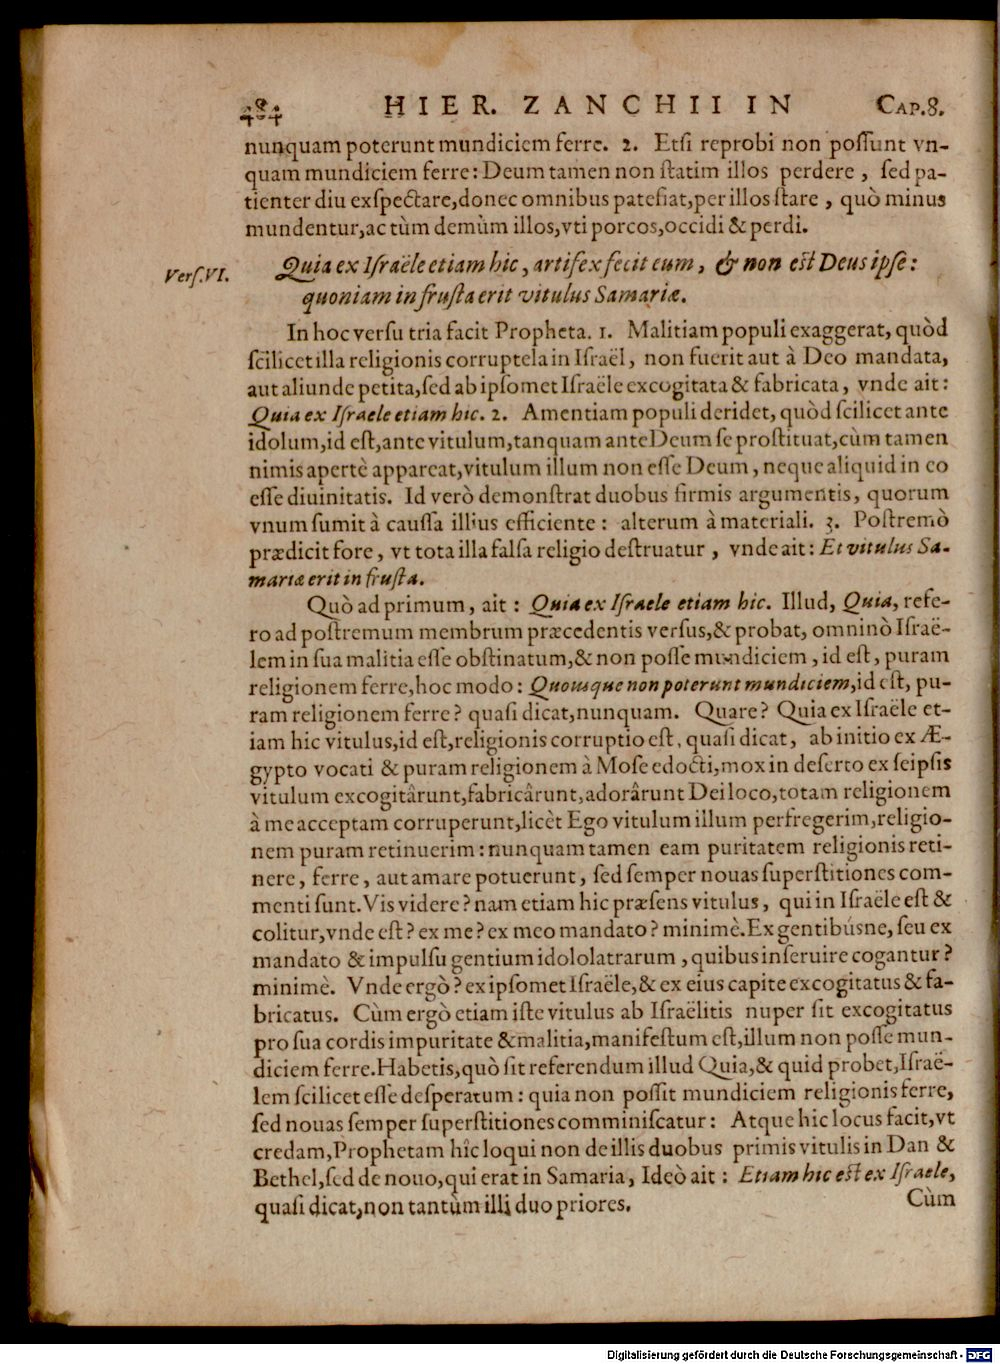 HIER. ZANCHII IN CAP.8.
nunquam poterunt mundiciem ferre. 2. Etsi reprobi non possunt vn-
quam mundiciem ferre: Deum tamen non statim illos perdere, sed pa-
tienter diu exspectare, donec omnibus patefiat, per illos stare, quò minus
mundentur, ac tùm demùm illos, vti porcos, occidi & perdi.
Vers. VI.
Quia ex Israële etiam hic, artifex fecit eum, & non est Deus ipse:
quoniam in frusta erit vitulus Samariæ.
In hoc versu tria facit Propheta. 1. Malitiam populi exaggerat, quòd
scilicet illa religionis corruptela in Israël, non fuerit aut à Deo mandata,
aut aliunde petita, sed ab ipsomet Israële excogitata & fabricata, vnde ait:
Quia ex Israele etiam hic. 2. Amentiam populi deridet, quòd scilicet ante
idolum, id est, ante vitulum, tanquam ante Deum se prostituat, cùm tamen
nimis apertè appareat, vitulum illum non esse Deum, neque aliquid in eo
esse diuinitatis. Id verò demonstrat duobus firmis argumentis, quorum
vnum sumit à caussa illius efficiente: alterum à materiali. 3. Postremò
prædicit fore, vt tota illa falsa religio destruatur, vnde ait: Et vitulus Sa-
mariæ erit in frusta.
Quò ad primum, ait: Quia ex Israele etiam hic. Illud, Quia, refe-
ro ad postremum membrum præcedentis versus, & probat, omninò Israë-
lem in sua malitia esse obstinatum, & non posse mundiciem, id est, puram
religionem ferre, hoc modo: Quousque non poterunt mundiciem, id est, pu-
ram religionem ferre? quasi dicat, nunquam. Quare? Quia ex Israële et-
iam hic vitulus, id est, religionis corruptio est, quasi dicat, ab initio ex Æ-
gypto vocati & puram religionem à Mose edocti, mox in deserto ex seipsis
vitulum excogitârunt, fabricârunt, adorârunt Dei loco, totam religionem
à me acceptam corruperunt, licèt Ego vitulum illum perfregerim, religio-
nem puram retinuerim: nunquam tamen eam puritatem religionis reti-
nere, ferre, aut amare potuerunt, sed semper nouas superstitiones com-
menti sunt. Vis videre? nam etiam hic præsens vitulus, qui in Israële est &
colitur, vnde est? ex me? ex meo mandato? minimè. Ex gentibúsne, seu ex
mandato & impulsu gentium idololatrarum, quibus inseruire cogantur?
minimè. Vnde ergò? ex ipsomet Israële, & ex eius capite excogitatus & fa-
bricatus. Cùm ergò etiam iste vitulus ab Israëlitis nuper sit excogitatus
pro sua cordis impuritate & malitia, manifestum est, illum non posse mun-
diciem ferre. Habetis, quò sit referendum illud Quia, & quid probet, Israë-
lem scilicet esse desperatum: quia non possit mundiciem religionis ferre,
sed nouas semper superstitiones comminiscatur: Atque hic locus facit, vt
credam, Prophetam hîc loqui non de illis duobus primis vitulis in Dan &
Bethel, sed de nouo, qui erat in Samaria, Ideò ait: Etiam hic est ex Israele,
quasi dicat, non tantùm illi duo priores.
Cùm
Digitalisierung gefördert durch die Deutsche Forschungsgemeinschaft - DFG